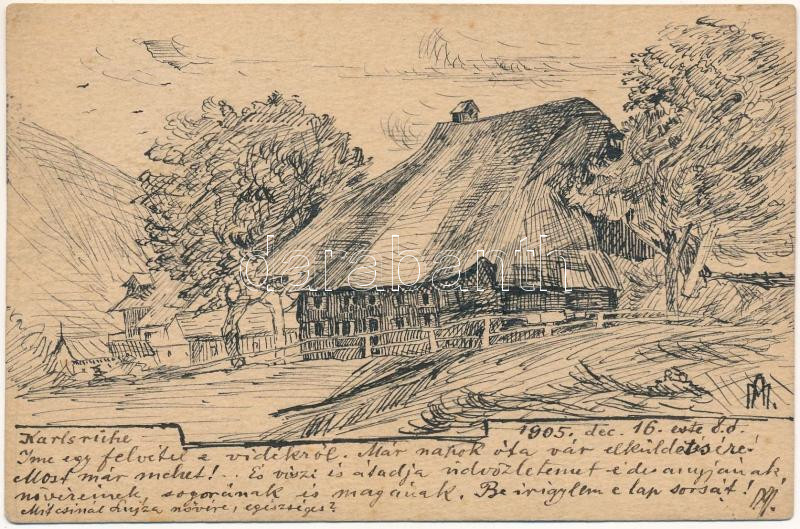 darabanth
AM.
Karlsruhe
1905. dec. 16. este 8.ó.
Ime egy felvétel e vidékről. Már napok óta vár elküldetésére!
Most már mehet!.. És viszi is átadja üdvözletemet édesanyjának
növéreinek, sogorának és magának. Be irigylem e lap sorsát!
Mit csinál Lujza növére, egészséges?